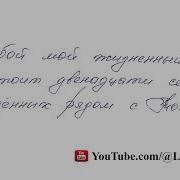 бой мой жизненный
тоит двенадцати се
дённих рядом с
YouTube.com/@L